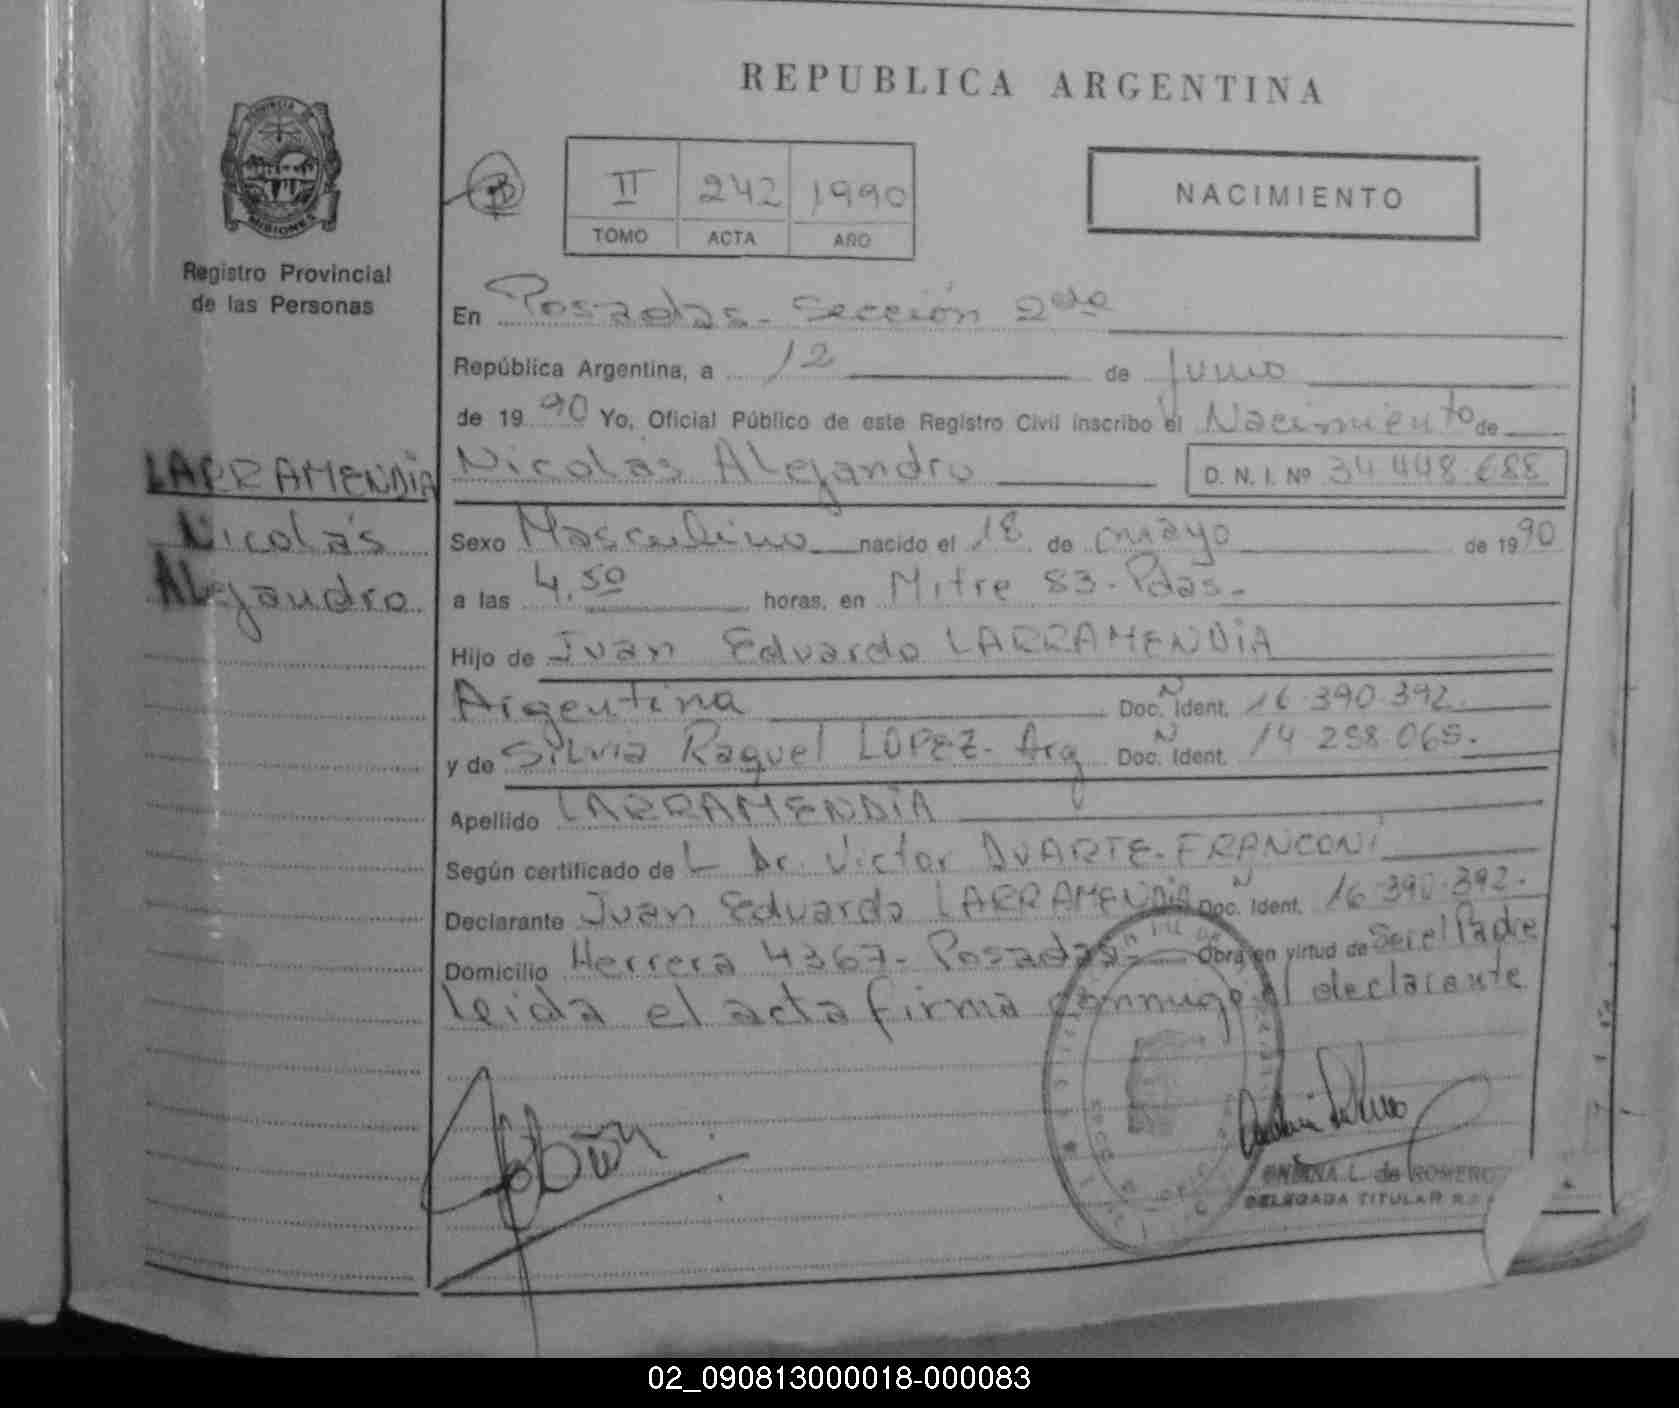 REPUBLICA ARGENTINA
PROVINCIA
MISIONES
Registro Provincial
de las Personas
II 242 1990
TOMO ACTA AÑO
NACIMIENTO
En Posadas - Sección 2da
República Argentina, a 12 de Junio
de 1990 Yo, Oficial Público de este Registro Civil inscribo el Nacimiento de
LARRAMENDIA
Nicolás
Alejandro
Nicolás Alejandro D. N. I. Nº 34 448.688
Sexo Masculino nacido el 18 de mayo de 1990
a las 4,50 horas, en Mitre 83 - Pdas -
Hijo de Juan Eduardo LARRAMENDIA
Argentina Doc. Ident. 16.390.392.
y de Silvia Raquel LOPEZ - Arg Doc. Ident. 14 258.065.
Apellido LARRAMENDIA
Según certificado del Dr. Victor DUARTE - FRANCONI
Declarante Juan Eduardo LARRAMENDIA Doc. Ident. 16.390.392.
Domicilio Herrera 4367 - Posadas - Obra en virtud de Ser el Padre
leida el acta firma conmigo el declarante
L. de ROMERO
DELEGADA TITULAR
02_090813000018-000083